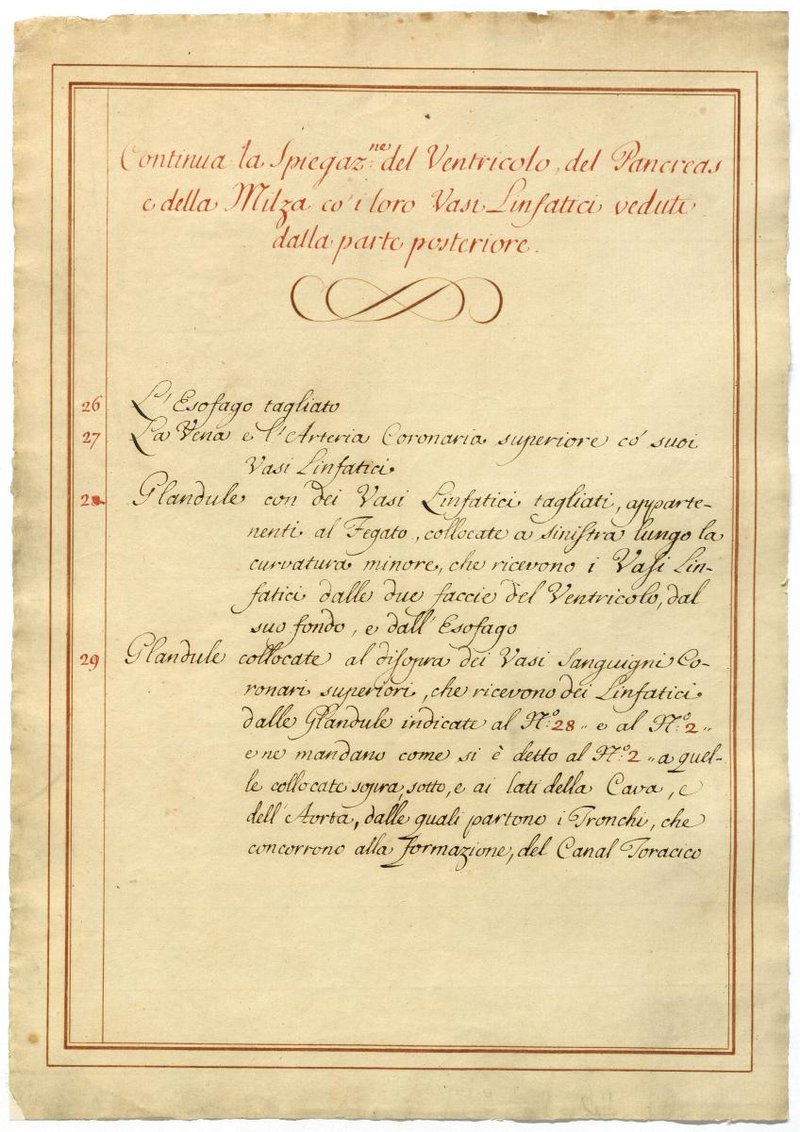 Continua la Spiegaz:ne del Ventricolo, del Pancreas
e della Milza co' i loro Vasi Linfatici veduti
dalla parte posteriore.
26 L'Esofago tagliato
27 La Vena e l'Arteria Coronaria superiore co' suoi
Vasi Linfatici
28 Glandule con dei Vasi Linfatici tagliati, apparte-
nenti al Fegato, collocate a sinistra lungo la
curvatura minore, che ricevono i Vasi Lin-
fatici dalle due faccie del Ventricolo, dal
suo fondo, e dall'Esofago
29 Glandule collocate al disopra dei Vasi Sanguigni Co-
ronari superiori, che ricevono dei Linfatici
dalle Glandule indicate al N:o 28 „ e al N:o 2 „
e ne mandano come si è detto al N:o 2 „ a quel-
le collocate sopra, sotto, e ai lati della Cava, e
dell'Aorta, dalle quali partono i Tronchi, che
concorrono alla formazione, del Canal Toracico